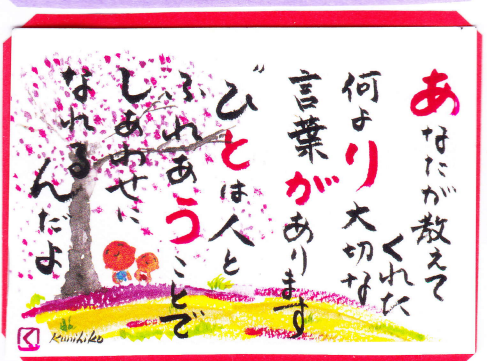 あなたが教えて
くれた
何より大切な
言葉があります
"ひとは人と
ふれあうことで
しあわせに
なれるんだよ
Kunihiko